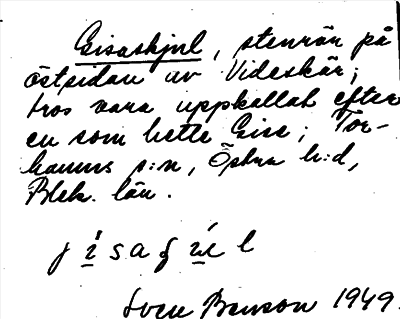 Gisaskjul, stenrör på
östsidan av Videskär;
tros vara uppkallat efter
en som hette Gise; Tor-
hamns s:n, Östra h:d,
Blek. län.
Sven Benson 1949.